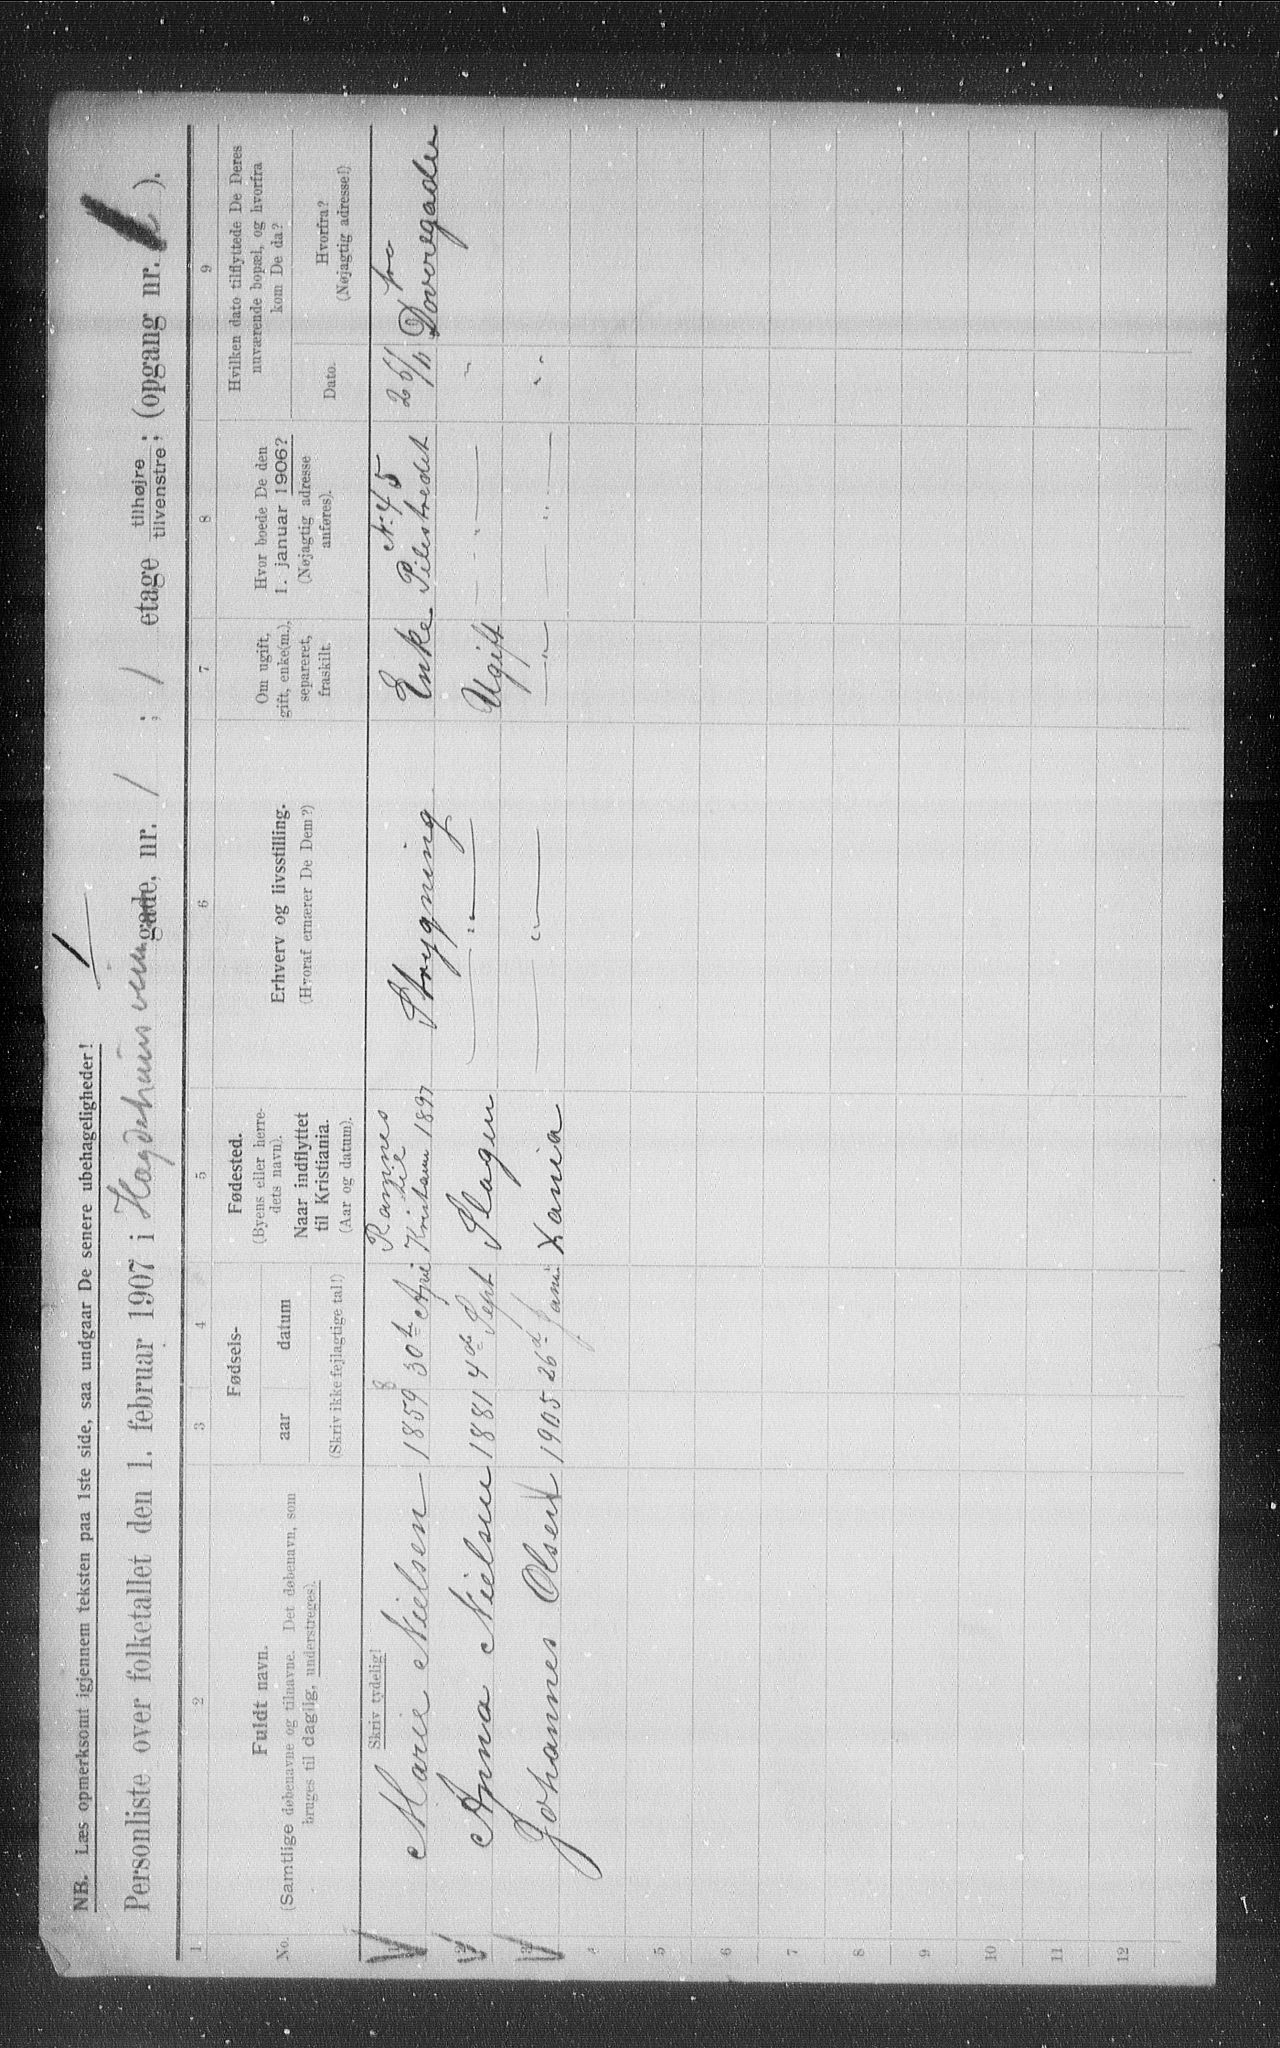 NB. Læs opmerksomt igjennem teksten paa 1ste side, saa undgaar De senere ubehageligheder!
1
Personliste over folketallet den 1. februar 1907 i gade, nr. 1 ; 1 etage tilhøjre / tilvenstre; (opgang nr. ).
1 2 3 4 5 6 7 8 9
No.
Fuldt navn.
(Samtlige døbenavne og tilnavne. Det døbenavn, som
bruges til daglig, understreges).
Fødsels-
aar datum
(Skriv ikke fejlagtige tal!)
Fødested.
(Byens eller herre-
dets navn).
Naar indflyttet
til Kristiania.
(Aar og datum).
Erhverv og livsstilling.
(Hvoraf ernærer De Dem?)
Om ugift,
gift, enke(m.),
separeret,
fraskilt.
Hvor boede De den
1. januar 1906?
(Nøjagtig adresse
anføres).
Hvilken dato tilflyttede De Deres
nuværende bopæl, og hvorfra
kom De da?
Dato.
Hvorfra?
(Nøjagtig adresse!)
Skriv tydelig!
Ramnes No 45 fra
1 Marie Nielsen 1859 30te Apri 1897 Strygning Enke Pilestredet 26/11 Dovregaden
8
2 Anna Nielsen 1881 4de Sept Slagen — " — Ugift — " — "
3 Johannes Olsen 1905 26de Janu Xania — " — — " — — " — "
4
5
6
7
8
9
10
11
12